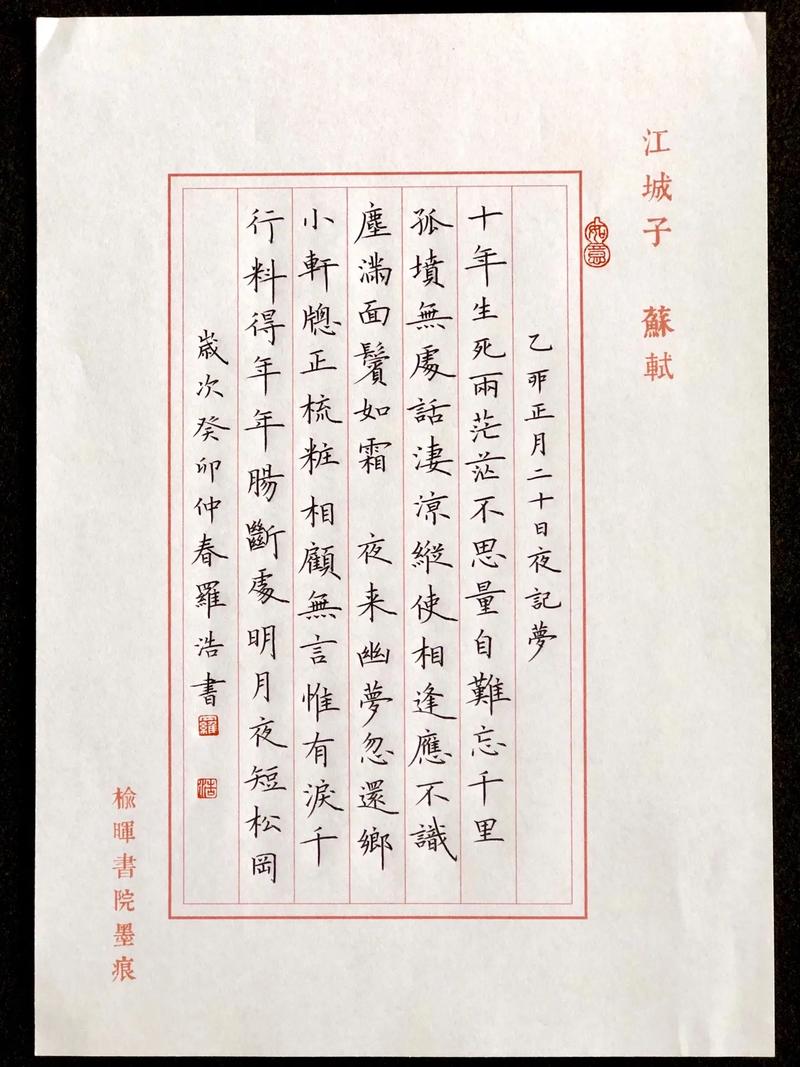 江城子 蘇軾
如意
乙卯正月二十日夜記夢
十年生死兩茫茫不思量自難忘千里
孤墳無處話淒涼縱使相逢應不識
塵滿面鬢如霜 夜来幽夢忽還鄉
小軒牕正梳粧相顧無言惟有淚千
行料得年年腸斷處明月夜短松岡
歲次癸卯仲春羅浩書
羅
浩
榆暉書院墨痕